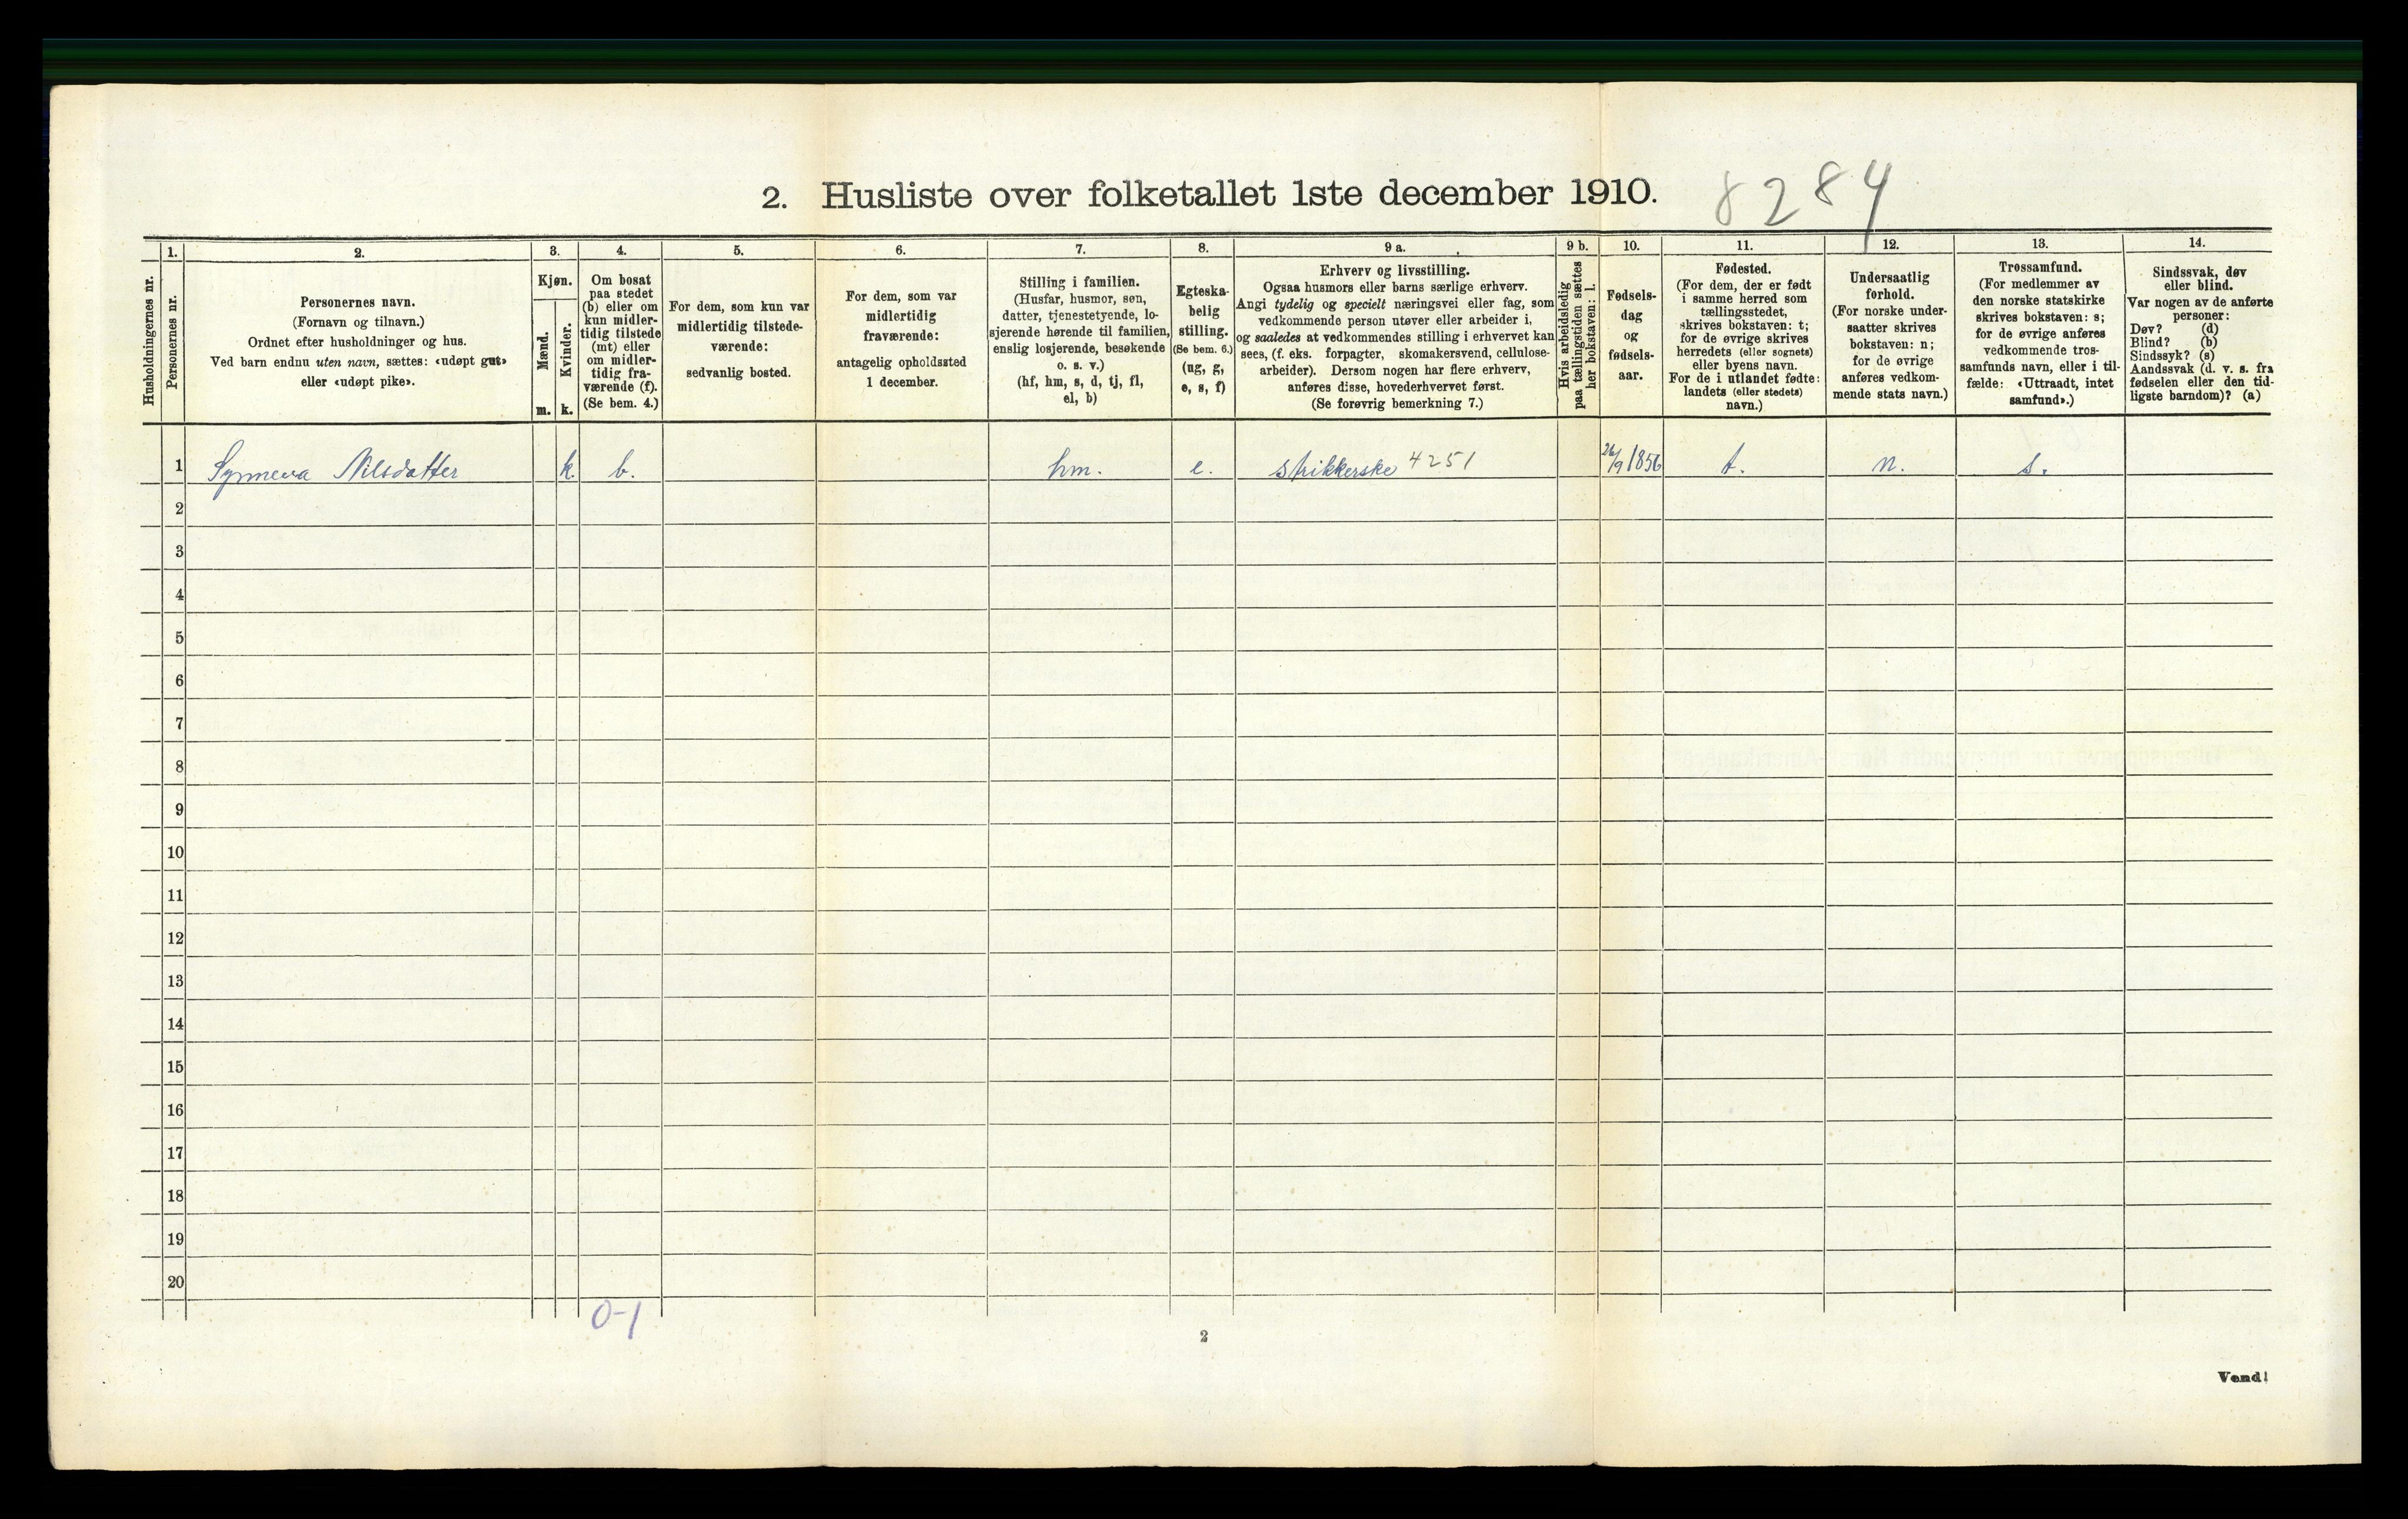 2. Husliste over folketallet 1ste december 1910.
8284
Husholdningernes nr.
1.
Personernes nr.
2.
Personernes navn.
(Fornavn og tilnavn.)
Ordnet efter husholdninger og hus.
Ved barn endnu uten navn, sættes: «udøpt gut»
eller «udøpt pike».
3.
Kjøn.
Mænd.
Kvinder.
m. k.
4.
Om bosat
paa stedet
(b) eller om
kun midler-
tidig tilstede
(mt) eller
om midler-
tidig fra-
værende (f).
(Se bem. 4.)
5.
For dem, som kun var
midlertidig tilstede-
værende:
sedvanlig bosted.
6.
For dem, som var
midlertidig
fraværende:
antagelig opholdssted
1 december.
7.
Stilling i familien.
(Husfar, husmor, søn,
datter, tjenestetyende, lo-
sjerende hørende til familien,
enslig losjerende, besøkende
o. s. v.)
(hf, hm, s, d, tj, fl,
el, b)
8.
Egteska-
belig
stilling.
(Se bem. 6.)
(ug, g,
e, s, f)
9 a.
Erhverv og livsstilling.
Ogsaa husmors eller barns særlige erhverv.
Angi tydelig og specielt næringsvei eller fag, som
vedkommende person utøver eller arbeider i,
og saaledes at vedkommendes stilling i erhvervet kan
sees, (f. eks. forpagter, skomakersvend, cellulose-
arbeider). Dersom nogen har flere erhverv,
anføres disse, hovederhvervet først.
(Se forøvrig bemerkning 7.)
9 b.
Hvis arbeidsledig
paa tællingstiden sættes
her bokstaven: l.
10.
Fødsels-
dag
og
fødsels-
aar.
11.
Fødested.
(For dem, der er født
i samme herred som
tællingsstedet,
skrives bokstaven: t;
for de øvrige skrives
herredets (eller sognets)
eller byens navn.
For de i utlandet fødte:
landets (eller stedets)
navn.)
12.
Undersaatlig
forhold.
(For norske under-
saatter skrives
bokstaven: n;
for de øvrige
anføres vedkom-
mende stats navn.)
13.
Trossamfund.
(For medlemmer av
den norske statskirke
skrives bokstaven: s;
for de øvrige anføres
vedkommende tros-
samfunds navn, eller i til-
fælde: «Uttraadt, intet
samfund».)
14.
Sindssvak, døv
eller blind.
Var nogen av de anførte
personer:
Døv? (d)
Blind? (b)
Sindssyk? (s)
Aandssvak (d. v. s. fra
fødselen eller den tid-
ligste barndom)? (a)
1 Synneva Nilsdatter k. b. hm. e. strikkerske 4251 26/9 1856 t. n. s.
2
3
4
5
6
7
8
9
10
11
12
13
14
15
16
17
18
19
20
0-1
2
Vend!